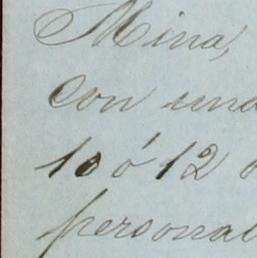 Mina,
con una
10 ó 12
personal